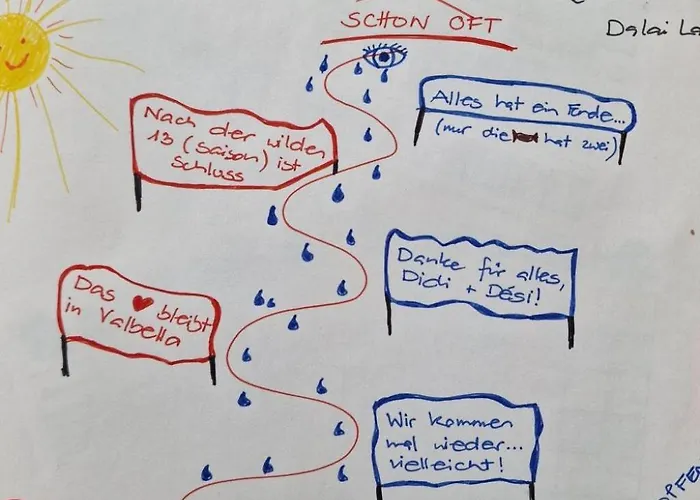 SCHON OFT
Dalai La
Alles hat ein Ende...
(nur die hat zwei)
Nach der wilden
13 (Saison) ist
Schluss
Danke für alles,
Didi + Dési!
Das ❤ bleibt
in Valbella
Wir kommen
mal wieder...
vielleicht!
OPFE